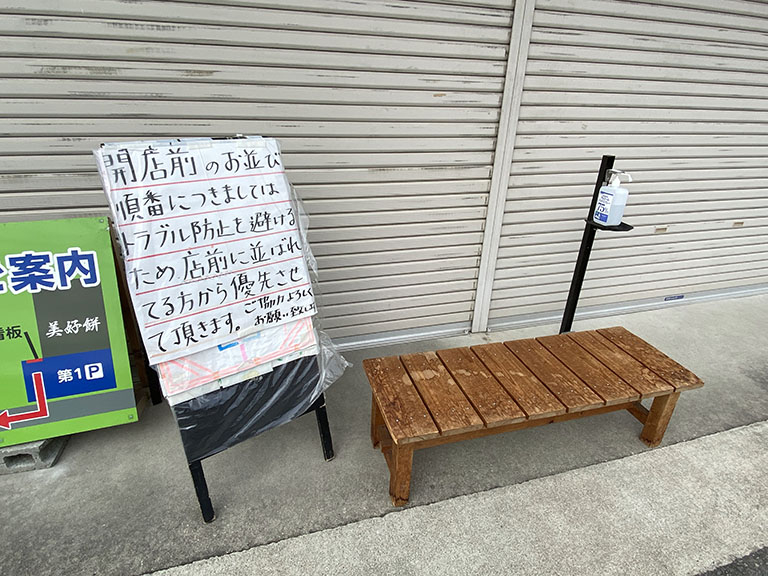 開店前のお並び
順番につきましては
トラブル防止を避ける
ため店前に並ばれ
てる方から優先させ
て頂きます。ご協力よろしく
お願い致します
案内
看板
美好餅
第1P
75%